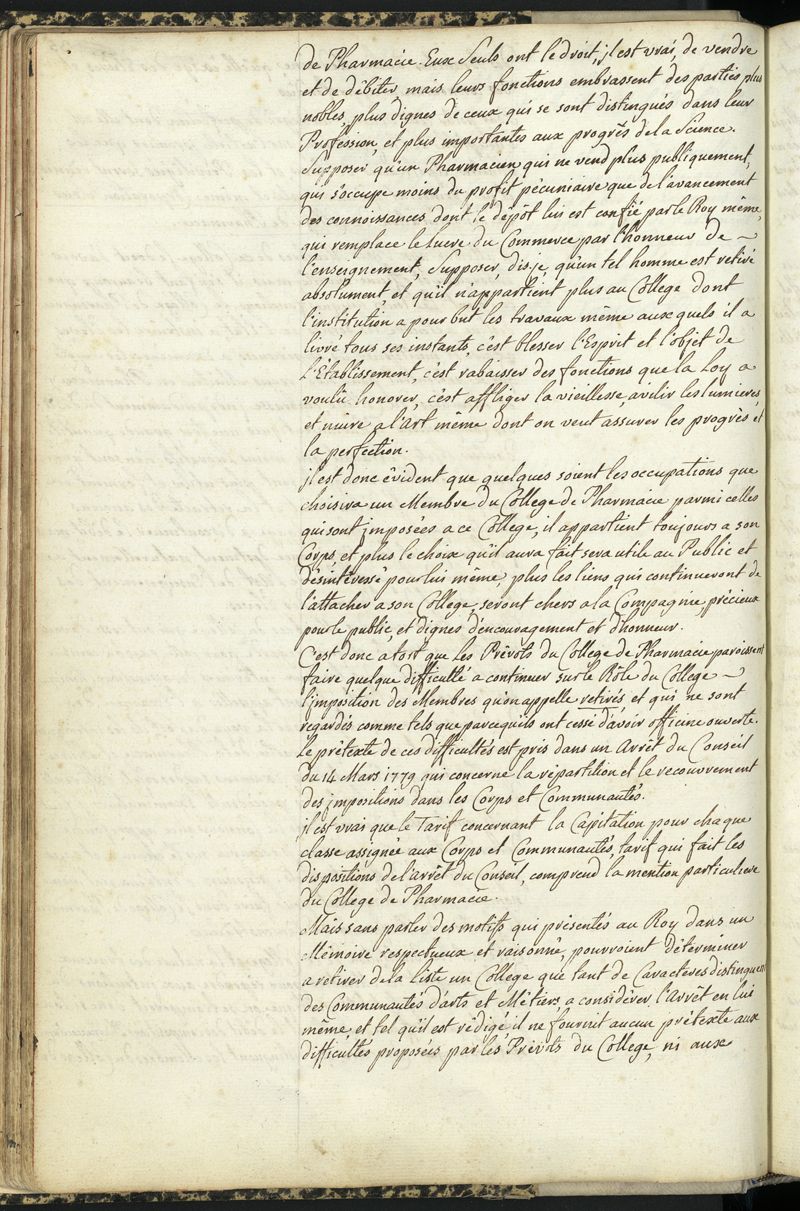 de Pharmacie. Eux Seuls ont le droit, jl est vrai, de vendre
et de débiter, mais leurs fonctions embrassent des parties plus
nobles, plus dignes de ceux qui se sont distingués dans leur
Profession, et plus importantes aux progrès de la Science.
Supposer qu'un Pharmacien qui ne vend plus publiquement,
qui s'occupe moins du profit pécuniaire que de l'avancement
des connoissances dont le dépôt lui est confié par le Roy même,
qui remplace le lucre du Commerce par l'honneur de ~
l'enseignement, Supposer, dis-je, qu'un tel homme est retiré
absolument, et qu'il n'appartient plus au College dont
l'institution a pour but les travaux même aux quels il a
livré tous ses instants, c'est blesser l'Esprit et l'objet de
l'Etablissement, c'est rabaisser des fonctions que la Loy a
voulu honorer, c'est affliger la vieillesse, avilir les lumieres,
et nuire a l'art même dont on veut assurer les progrès et
la perfection.
jl est donc évident que quelques soient les occupations que
choisira un Membre du College de Pharmacie parmi celles
qui sont jmposées a ce College, il appartient toujours a son
Corps, et plus le choix qu'il aura fait sera utile au Public et
désintéressé pour lui même, plus les liens qui continueront de
l'attacher a son College, seront chers a la Compagnie, précieux
pour le public, et dignes d'encouragement et d'honneur.
C'est donc a tort que les Prévôts du College de Pharmacie paroissent
faire quelque difficulté a continuer sur le Rôle du College ~
l'jmposition des Membres qu'on appelle retirés, et qui ne sont
regardés comme tels que parcequ'ils ont cessé d'avoir officine ouverte.
Le prétexte de ces difficultés est pris dans un Arrêt du Conseil
du 14 Mars 1779 qui concerne la répartition et le recouvrement
des jmpositions dans les Corps et Communautés.
jl est vrai que le Tarif concernant la Capitation pour chaque
classe assignée aux Corps et Communautés, tarif qui fait les
dispositions de l'arrêt du Conseil, comprend la mention particuliere
du College de Pharmacie.
Mais sans parler des motifs qui présentés au Roy dans un
Mémoire respectueux et raisonné, pourroient déterminer
a retirer de la liste un College que tant de Caracteres distinguent
des Communautés d'arts et Métiers, a considérer l'Arrêt en lui
même, et tel qu'il est rédigé, il ne fournit aucun prétexte aux
difficultés proposées par les Prévôts du College, ni aux